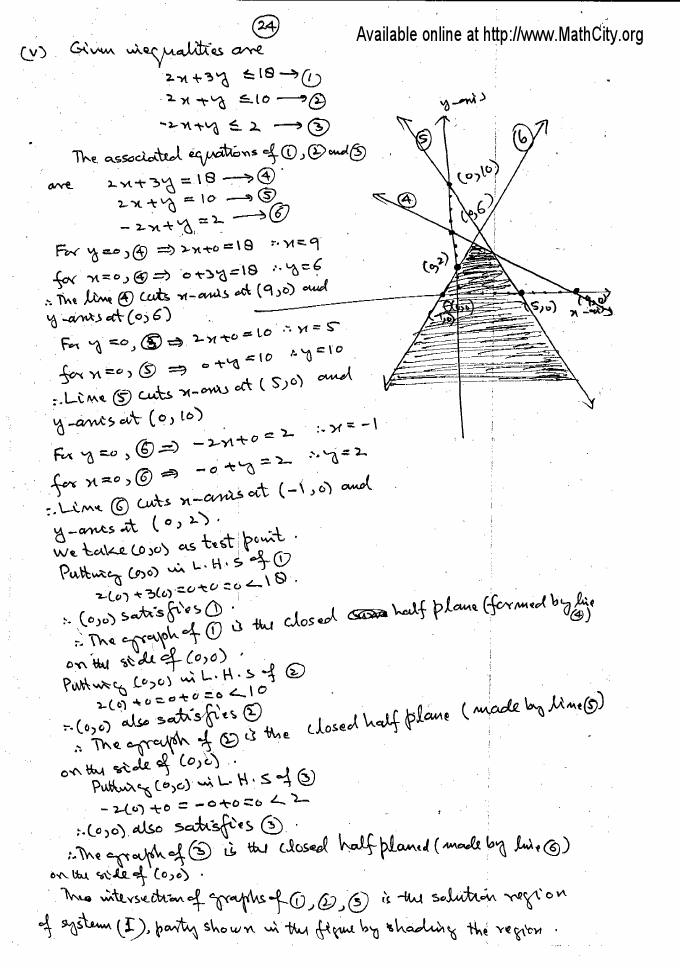 24
Available online at http://www.MathCity.org
(v) Given inequalities are
2x+3y ≤ 18 → ①
2x+y ≤ 10 → ②
-2x+y ≤ 2 → ③
The associated equations of ①, ② and ③
are 2x+3y = 18 → ④
2x+y = 10 → ⑤
-2x+y = 2 → ⑥
For y=0, ④ ⇒ 2x+0=18 ∴ x=9
for x=0, ④ ⇒ 0+3y=18 ∴ y=6
∴ The line ④ cuts x-axis at (9,0) and
y-axis at (0,6)
For y=0, ⑤ ⇒ 2x+0=10 ∴ x=5
for x=0, ⑤ ⇒ 0+y=10 ∴ y=10
∴ Line ⑤ cuts x-axis at (5,0) and
y-axis at (0,10)
For y=0, ⑥ ⇒ -2x+0=2 ∴ x=-1
for x=0, ⑥ ⇒ -0+y=2 ∴ y=2
∴ Line ⑥ cuts x-axis at (-1,0) and
y-axis at (0,2).
We take (0,0) as test point.
Putting (0,0) in L.H.S of ①
2(0)+3(0)=0+0=0<18.
∴ (0,0) satisfies ①.
∴ The graph of ① is the closed half plane (formed by line ④)
on the side of (0,0).
Putting (0,0) in L.H.S of ②
2(0)+0=0+0=0<10
∴ (0,0) also satisfies ②
∴ The graph of ② is the closed half plane (made by line ⑤)
on the side of (0,0).
Putting (0,0) in L.H.S of ③
-2(0)+0=-0+0=0<2
∴ (0,0) also satisfies ③.
∴ The graph of ③ is the closed half planed (made by line ⑥)
on the side of (0,0).
The intersection of graphs of ①, ②, ③ is the solution region
of system (I), party shown in the figure by shading the region.
y-axis
⑤
⑥
(0,10)
④
(0,6)
(0,2)
(-1,0)
(0,0)
(5,0)
(9,0)
x-axis